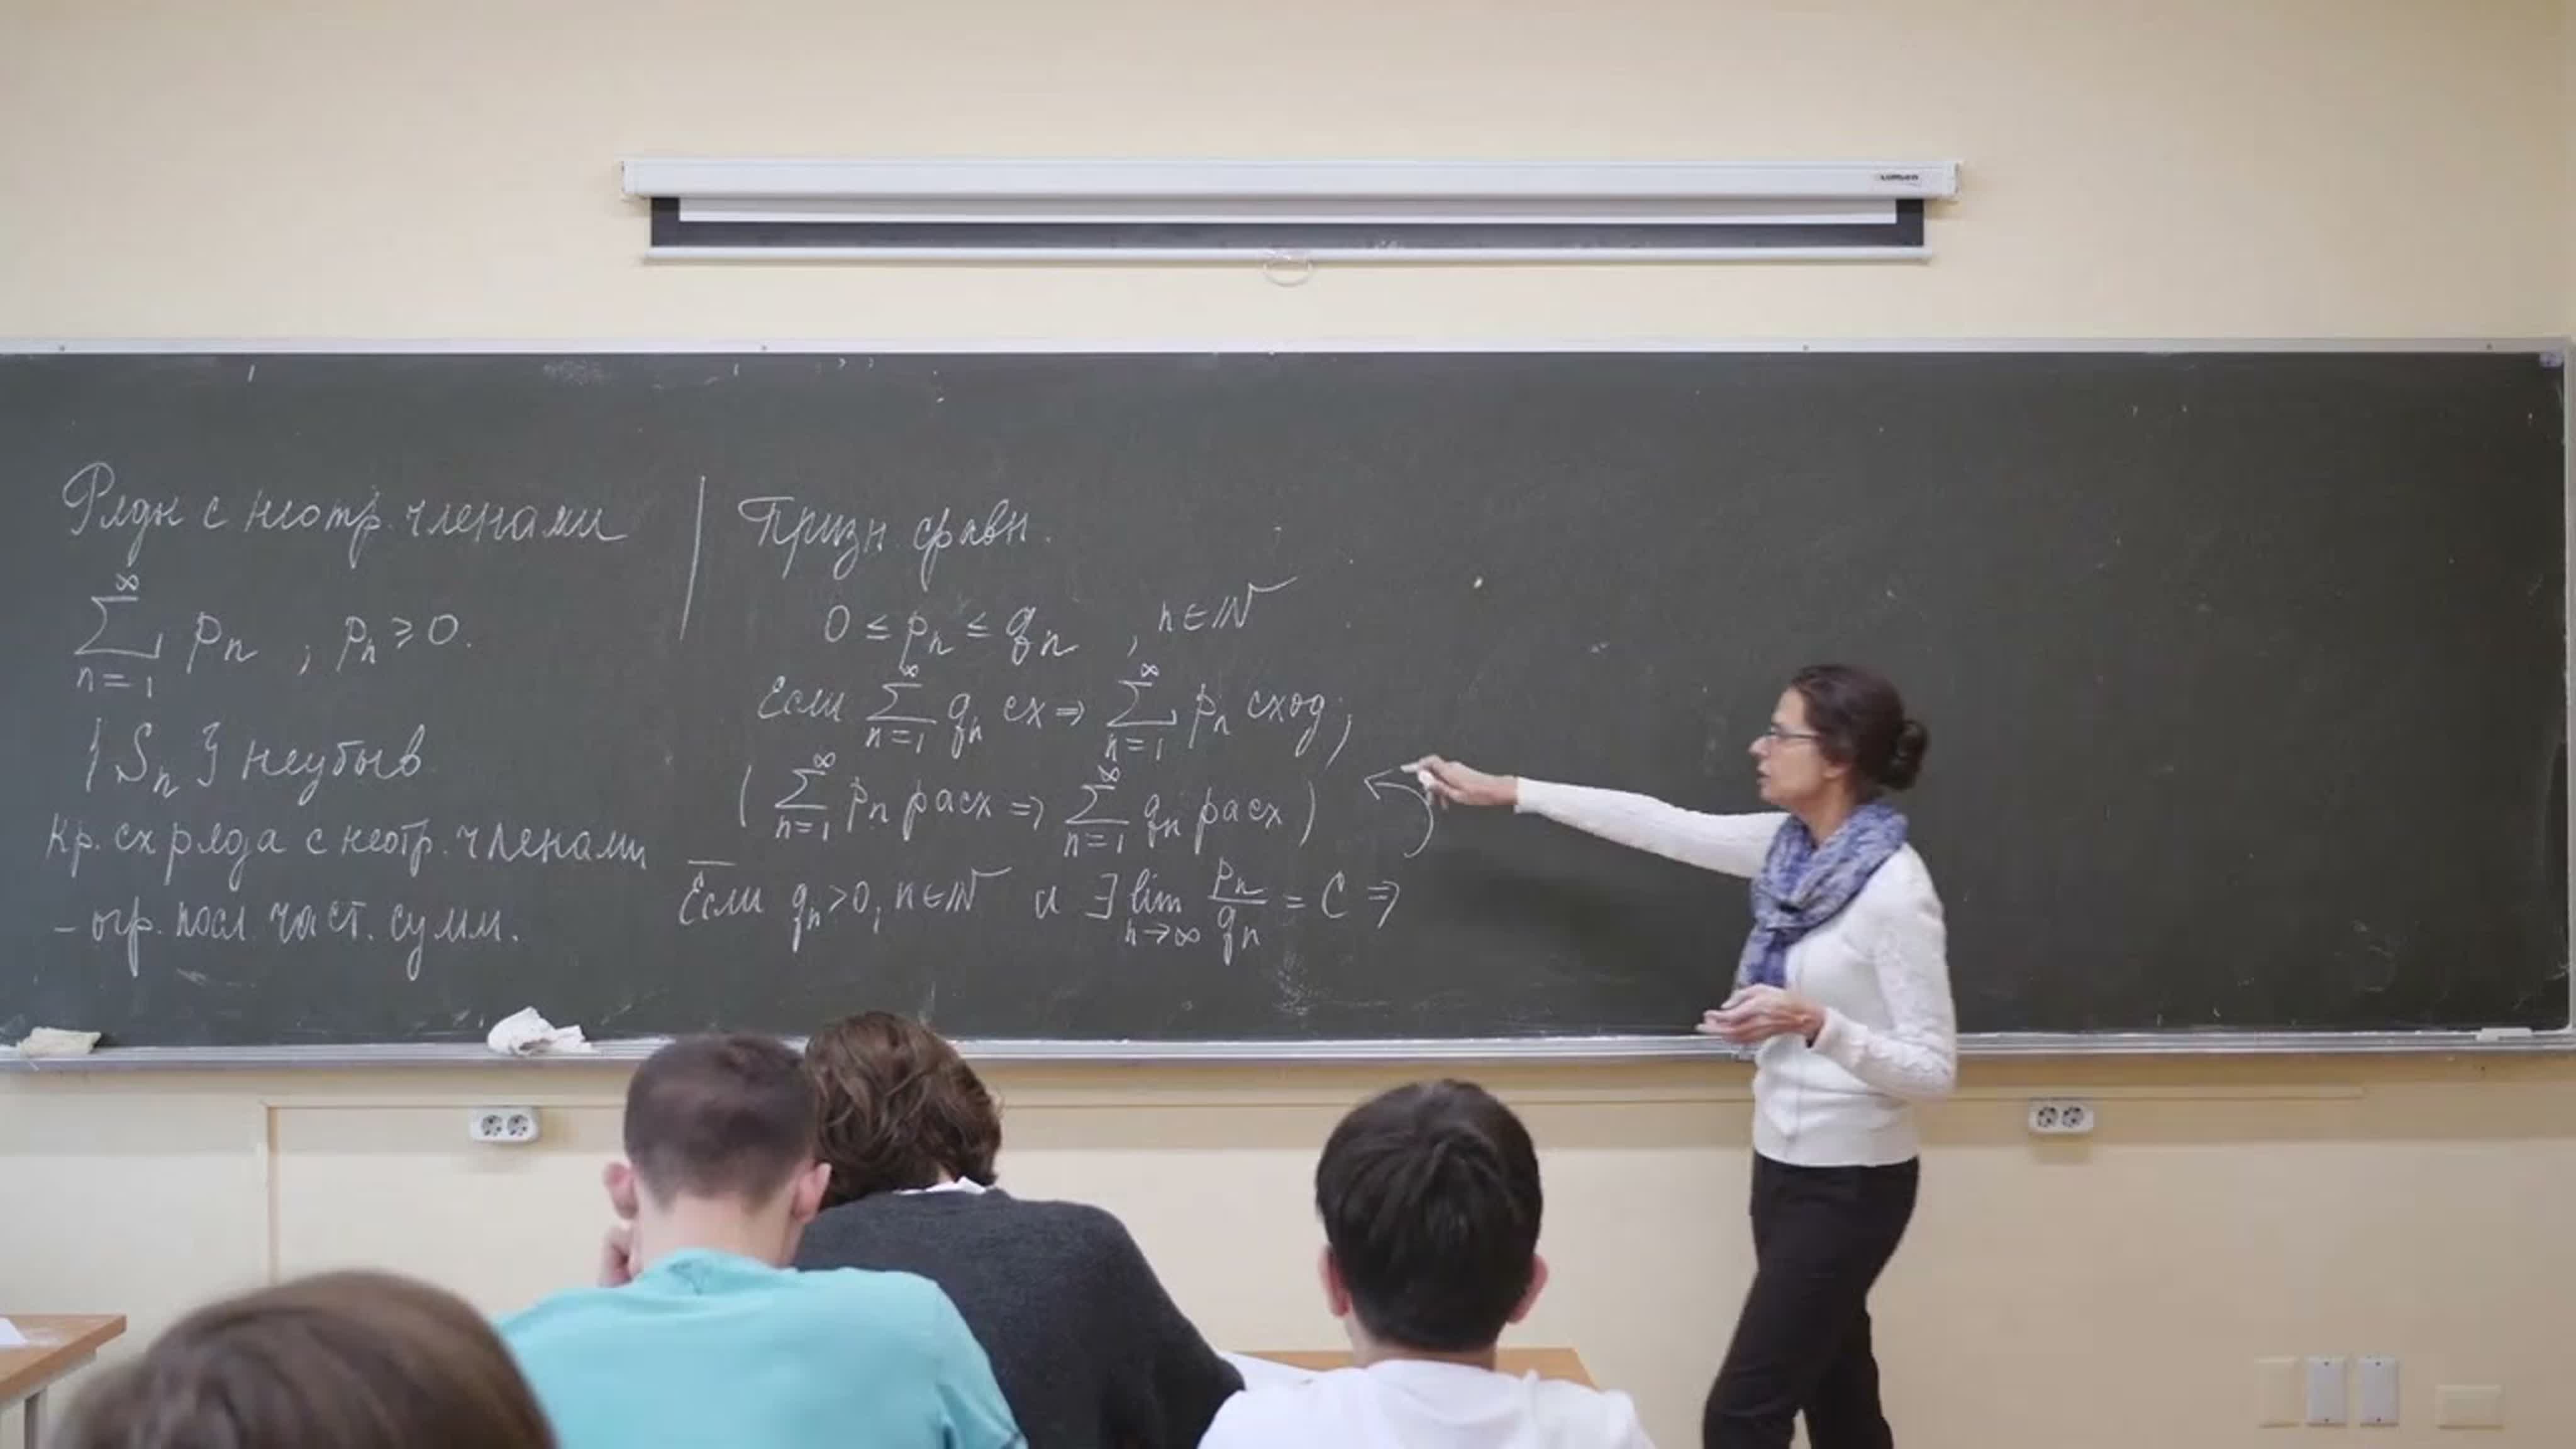 Ряды с неотр. членами
∞
∑ pₙ , pₙ ≥ 0.
n=1
{Sₙ} неубыв
Кр. сх ряда с неотр. членами
– огр. посл. част. сумм.
Призн. сравн.
0 ≤ pₙ ≤ qₙ , n ∈ ℕ
Если ∑_{n=1}^{∞} qₙ сх ⇒ ∑_{n=1}^{∞} pₙ сход;
( ∑_{n=1}^{∞} pₙ расх ⇒ ∑_{n=1}^{∞} qₙ расх )
Если qₙ > 0, n ∈ ℕ и ∃ lim_{n→∞} pₙ/qₙ = C ⇒